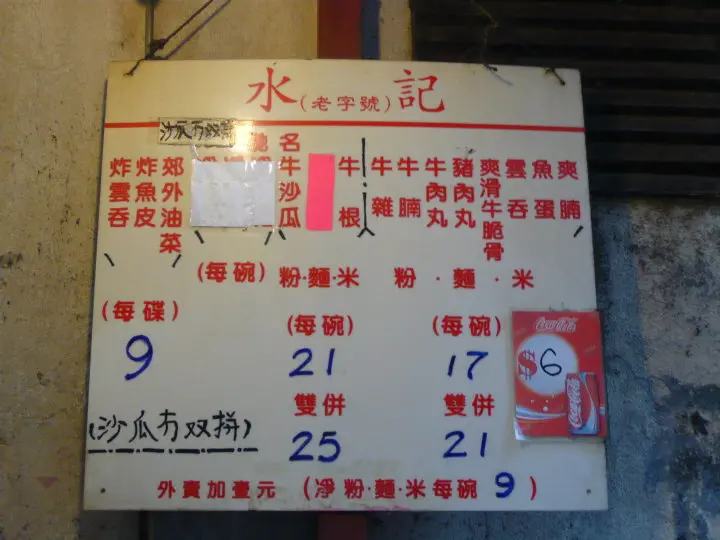 水(老字號)記
沙瓜冇双拼
馳名
爽腩
魚蛋
雲吞
爽滑牛脆骨
豬肉丸
牛肉丸
牛腩
牛雜
牛根
牛沙瓜
郊外油菜
炸魚皮
炸雲吞
粉·麵·米
(每碗)
17
雙併
21
粉·麵·米
(每碗)
21
雙併
25
(每碗)
(每碟)
9
(沙瓜冇双拼)
Coca-Cola
$6
Coca-Cola
外賣加壹元 (凈粉·麵·米每碗9)